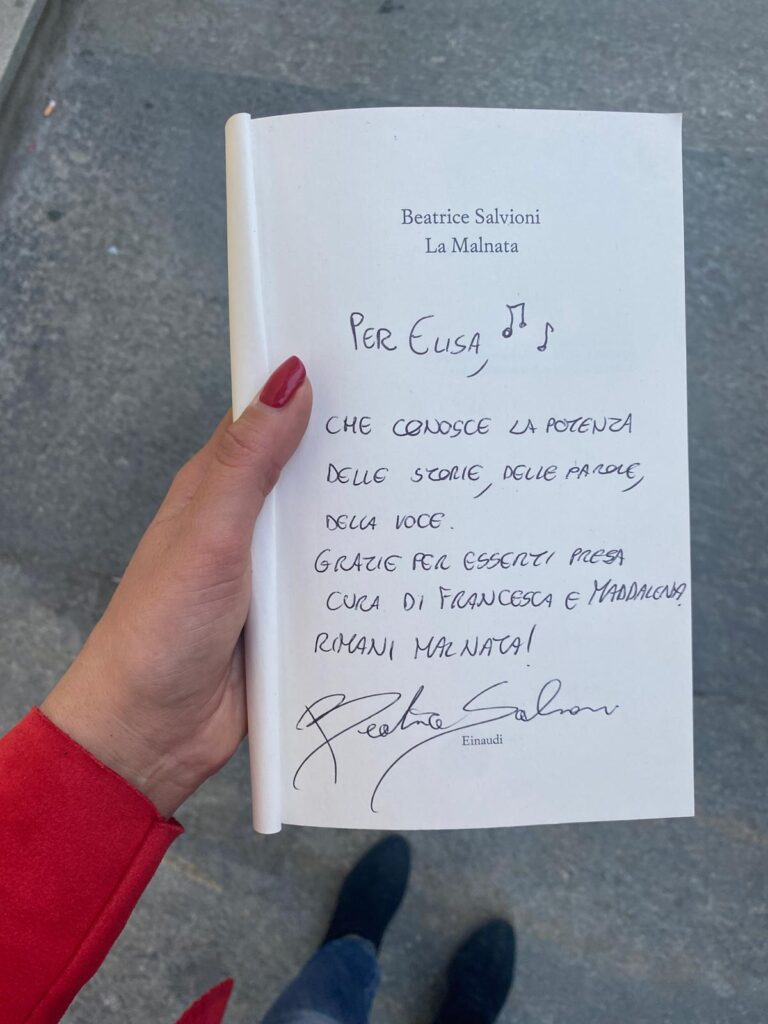 Beatrice Salvioni
La Malnata
PER ELISA,
CHE CONOSCE LA POTENZA
DELLE STORIE, DELLE PAROLE,
DELLA VOCE.
GRAZIE PER ESSERTI PRESA
CURA DI FRANCESCA E MADDALENA.
RIMANI MALNATA!
Beatrice Salvioni
Einaudi